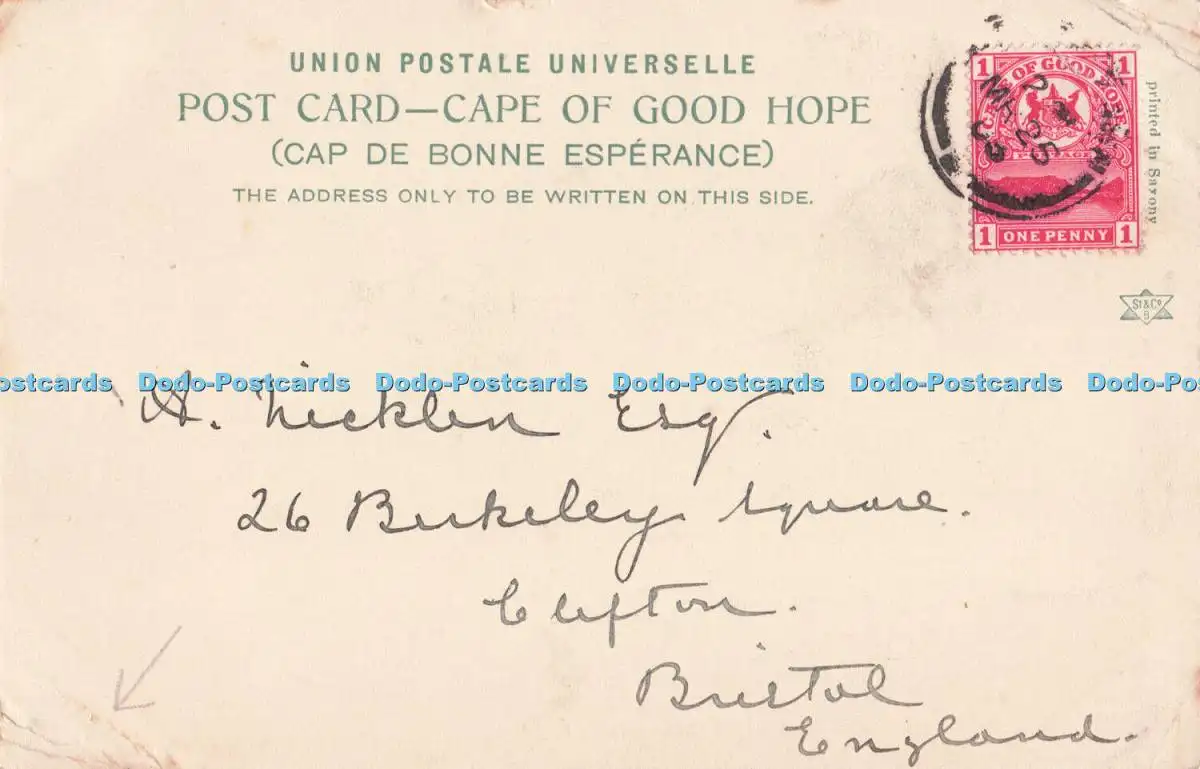 UNION POSTALE UNIVERSELLE
POST CARD—CAPE OF GOOD HOPE
(CAP DE BONNE ESPÉRANCE)
THE ADDRESS ONLY TO BE WRITTEN ON THIS SIDE.
1 CAPE OF GOOD HOPE 1
POSTAGE
1 ONE PENNY 1
printed in Saxony
St & Co
B
ostcards Dodo-Postcards Dodo-Postcards Dodo-Postcards Dodo-Postcards Dodo-Po
A. Nicklin Esq.
26 Berkeley Square.
Clifton.
Bristol
England.